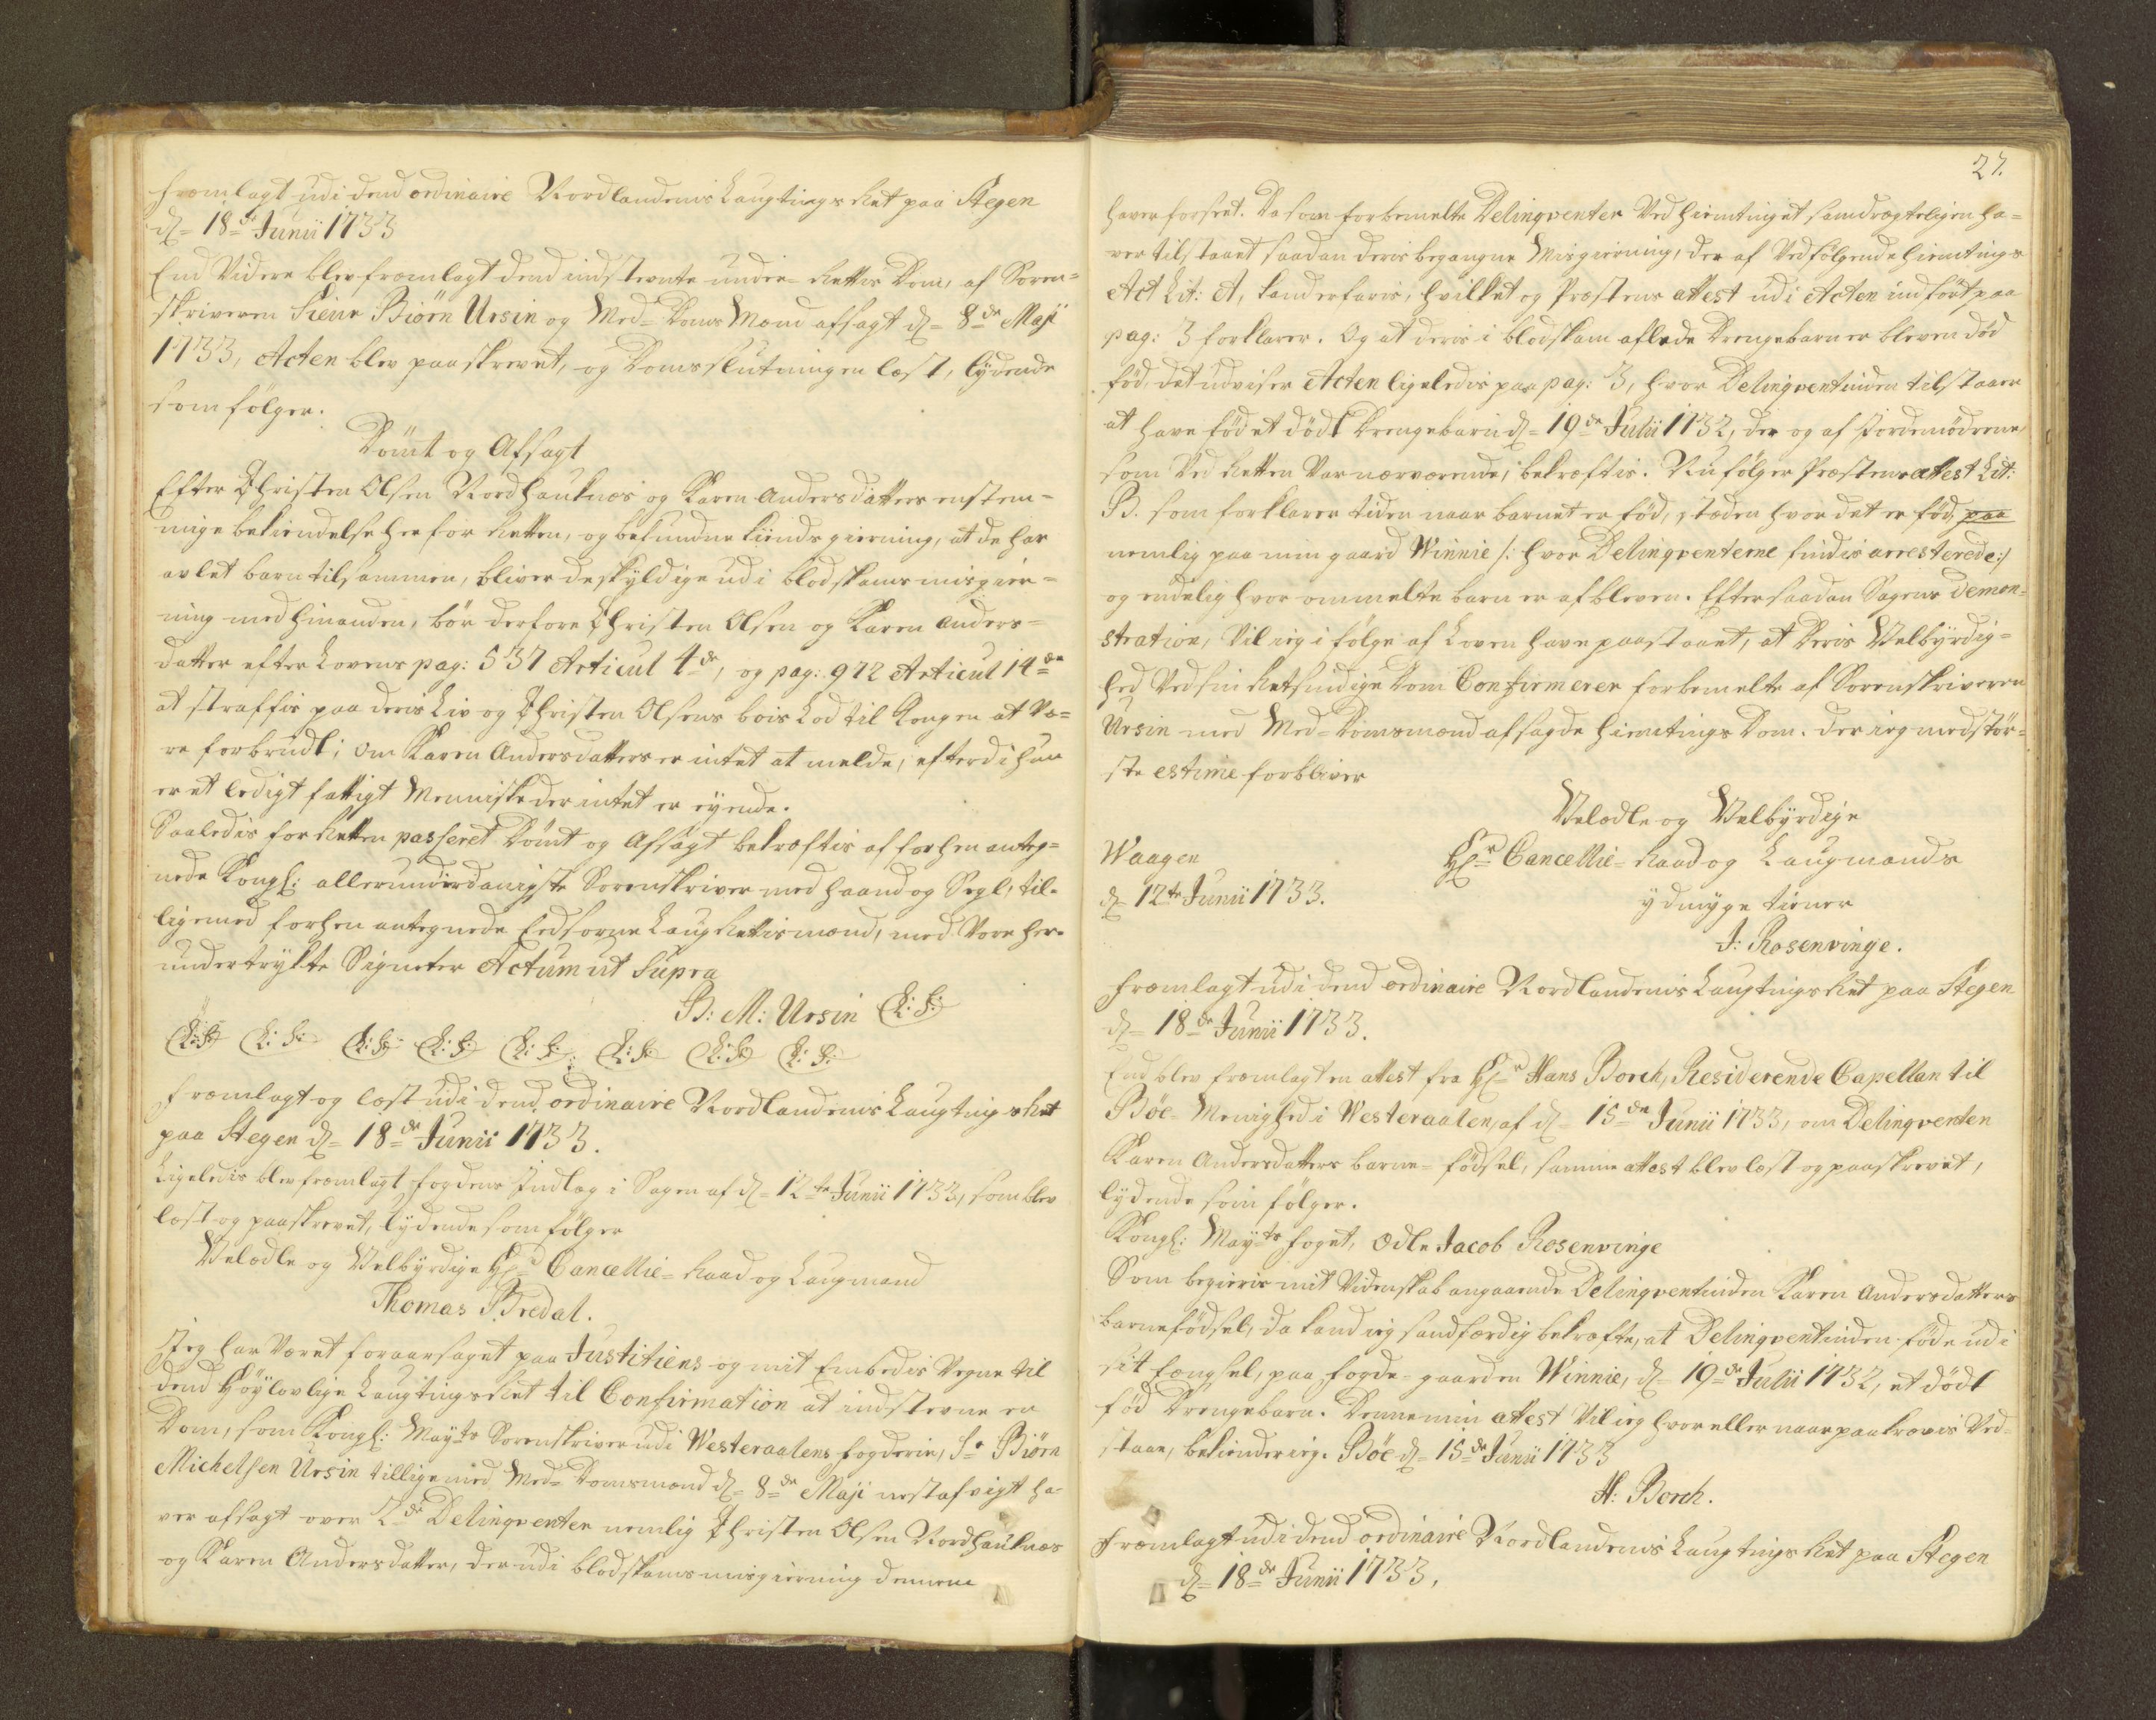 fremlagt udi dend ordinaire Nordlandenis Laugtings Ret paa Stegen
d: 18de Junii 1733
End Videre blev fremlagt dend indstevnte under-Rettis Dom, af Soren-
skriveren Sieur Biörn Ursin og Med-Doms Mænd afsagt d: 8de Maji
1733, Acten blev paaskrevet, og Doms slutningen læst, lydende
som følger.
Dömt og Afsagt
Efter Christen Olsen Nordhauknæs og Karen Andersdatters enstem-
mige bekiendelse her for Retten, og befundne kiends gierning, at de har
avlet barn tilsammen, bliver de skyldige udi blodskams misgier-
ning med hinanden, bör derfore Christen Olsen og Karen Anders-
datter efter Lovens pag: 537 Articul 4de, og pag: 972 Articul 14de
at straffis paa deris Liv og Christen Olsens bois Lod til Kongen at Væ-
re forbrudt; om Karen Andersdatters er intet at melde, efterdi hun
er et ledigt fattigt Menniske der intet er eyende.
Saaledis for Retten passeret Dömt og Afsagt bekræftis af forhen anteg-
nede Kongl: allerunderdanigste Sorenskriver med haand og Segl, til-
ligemed forhen antegnede Eedsorne Laug Rettismænd, med Vore her-
undertrykte Signeter Actum ut Supra
B: M: Ursin (L: S:)
(L:S:) (L: S:) (L: S:) (L: S:) (L: S:) (L: S:) (L: S:) (L: S:)
fremlagt og læst udi dend ordinaire Nordlandenis Laugtings Ret
paa Stegen d: 18de Junii 1733.
Ligeledis blev fremlagt fogdens Indlæg i Sagen af d: 12te Junii 1733, som blev
læst og paaskrevet, lydende som følger
Velædle og Velbyrdige Hr Cancellie-Raad og Laugmand
Thomas Bredal.
Jeg har Været foraarsaget paa Justitiens og mit Embedis Vegne til
dend Höylovlige Laugtings Ret til Confirmation at indstevne en
Dom, som Kongl: Mayts Sorenskriver udi Westeraalens fogderie, Sr Biörn
Michelsen Ursin tillige med Med-Domsmænd d: 8de Maji nest afvigt ha-
ver afsagt over 2de Delinqventer nemlig Christen Olsen Nordhauknæs
og Karen Andersdatter, der udi blodskams misgierning dennem
27.
haver forseet. Da som forbemelte Delinqventer Ved hiemtinget samdrægteligen ha-
ver tilstaaet saadan deris begangne Misgierning, der af Vedfölgende hiemtings
Act Lit: A, kand erfaris, hvilket og Præstens attest udi Acten indfört paa
pag: 3 forklarer. Og at deris i blodskam aflede Drengebarn er bleven död
föd, det udviser Acten ligeledis paa pag: 3, hvor Delinqventinden tilstaaer
at have föd et dödt Drengebarn d: 19de Julii 1732, der og af Jordemödrene,
som Ved Retten Var nærværende, bekræftis. Nu følger Præstens attest Lit:
B. som forklarer tiden naar barnet er föd, stæden hvor det er föd, paa
nemlig paa min gaard Winnie /: hvor Delinqventerne findis arresterede:/
og endelig hvor ommelte barn er afbleven. Efter saadan Sagens demon-
stration, Vil ieg i følge af Loven have paastaaet, at Deris Velbyrdig-
hed Ved sin Retsindige Dom Confirmerer forbemelte af Sorenskriveren
Ursin med Med-Domsmænd afsagde hiemtings Dom. der ieg med stör-
ste estime forbliver
Velædle og Velbyrdige
Waagen
Hr Cancellie-Raad og Laugmands
d: 12te Junii 1733.
ydmyge tiener
J: Rosenvinge.
fremlagt udi dend ordinaire Nordlandenis Laugtings Ret paa Stegen
d: 18de Junii 1733.
End blev fremlagt en attest fra Hr Hans Borch, Residerende Capellan til
Böe-Menighed i Westeraalen, af d: 15de Junii 1733, om Delinqventen
Karen Andersdatters barne-födsel, samme attest blev læst og paaskrevet,
lydende som følger.
Kongl: Mayts foget, Ædle Jacob Rosenvinge
Som begieris mit Videnskab angaaende Delinqventinden Karen Andersdatters
barnefödsel, da kand ieg sandfærdig bekræfte, at Delinqventinden föde udi
sit fængsel, paa fogde-gaarden Winnie, d: 19de Julii 1732, et dödt
föd Drengebarn. Denne min attest Vil ieg hvor eller naar paakrævis Ved-
staae, bekiender ieg. Böe d: 15de Junii 1733
H: Borch.
fremlagt udi dend ordinaire Nordlandenis Laugtings Ret paa Stegen
d: 18de Junii 1733.